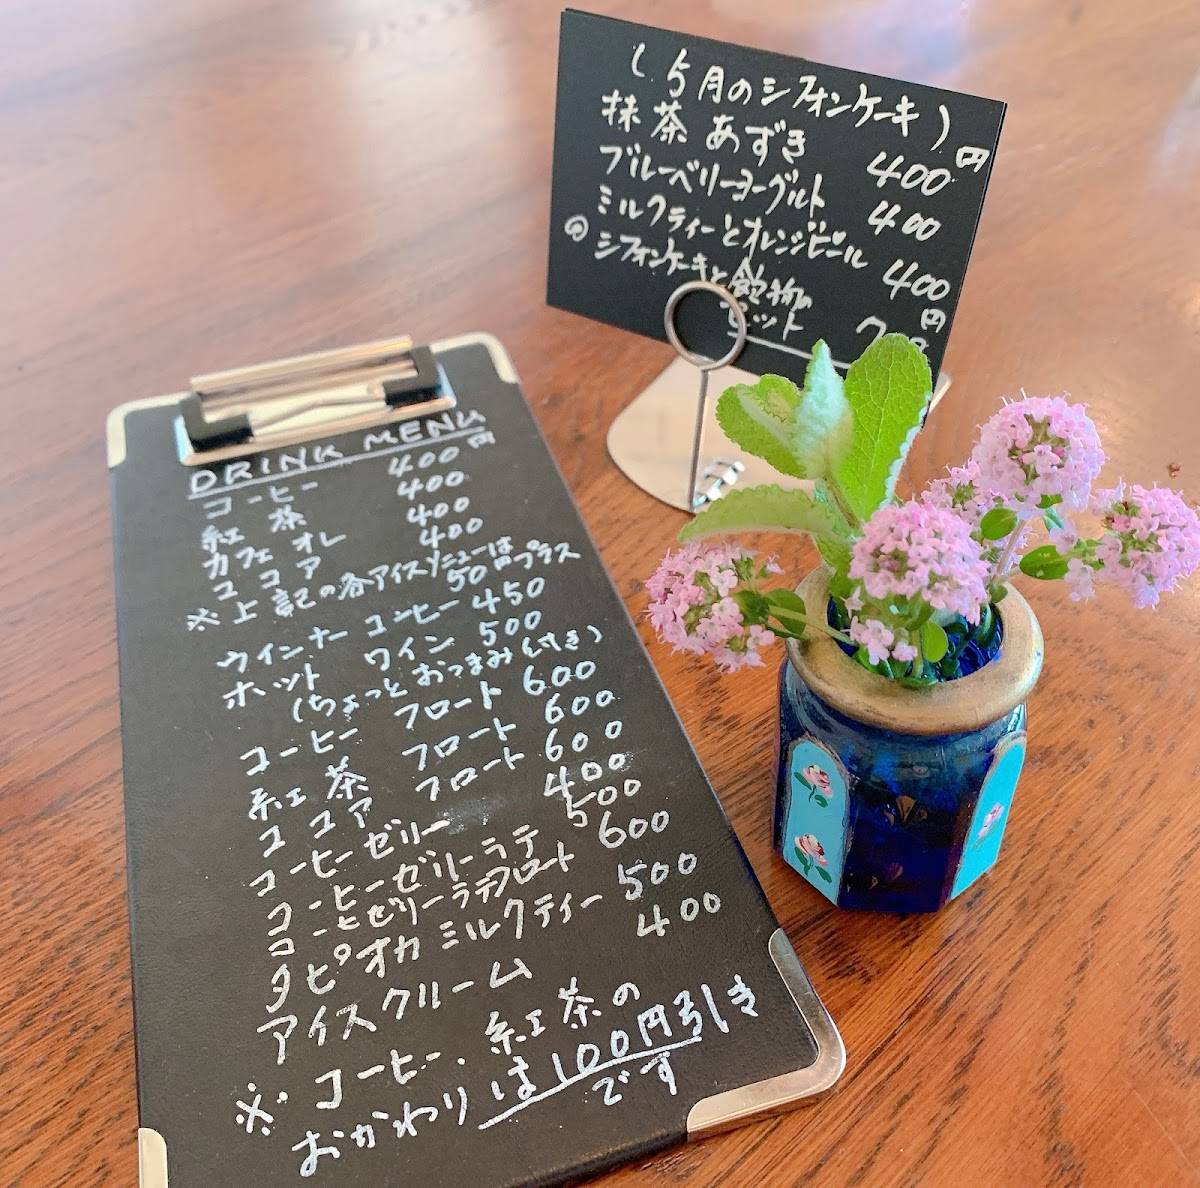 (5月のシフォンケーキ)
抹茶あずき 400円
ブルーベリーヨーグルト 400
ミルクティーとオレンジピール 400円
シフォンケーキと飲物の
セット
DRINK MENU
コーヒー 400円
紅茶 400
カフェオレ 400
ココア 400
※上記の各アイスメニューは
50円プラス
ウインナーコーヒー 450
ホットワイン 500
(ちょっとおつまみ付き)
コーヒーフロート 600
紅茶フロート 600
ココアフロート 600
コーヒーゼリー 400
コーヒーゼリーラテ 500
コーヒーゼリーラテフロート 600
タピオカミルクティー 500
アイスクリーム 400
※コーヒー、紅茶の
おかわりは100円引き
です